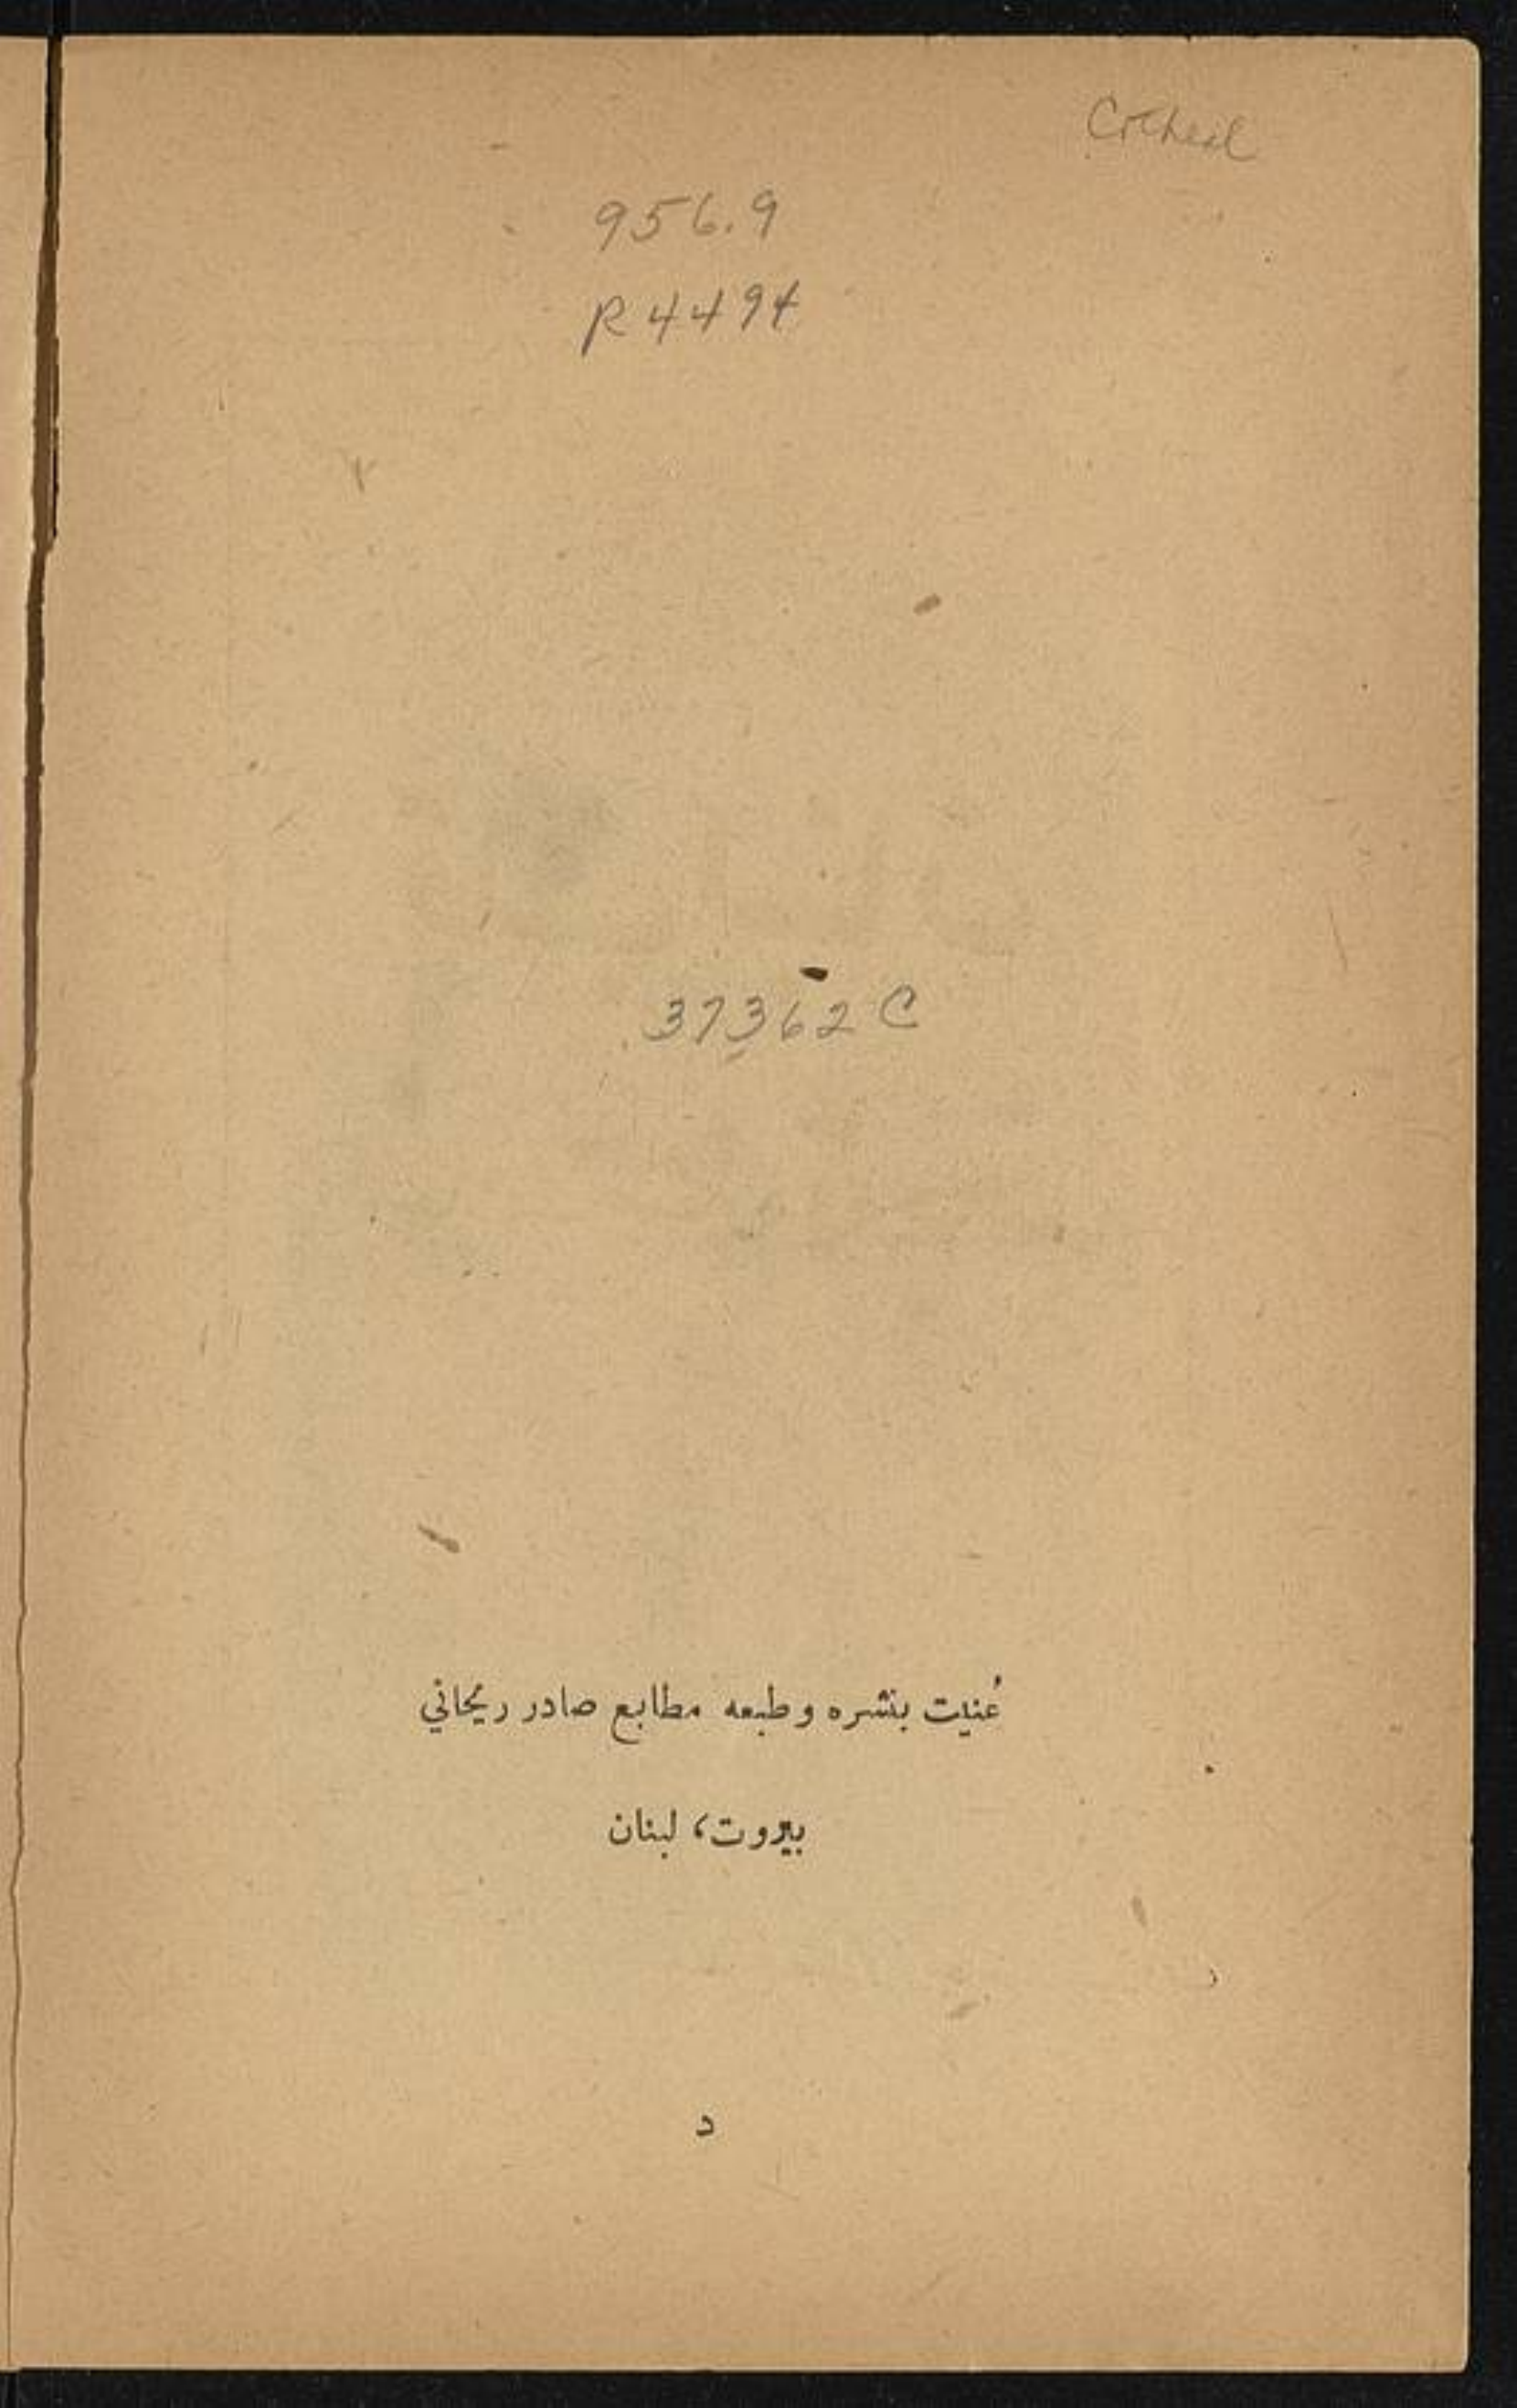 956.9
R4494
37362C
عُنيت بنشره وطبعه مطابع صادر ريحاني
بيروت، لبنان
د